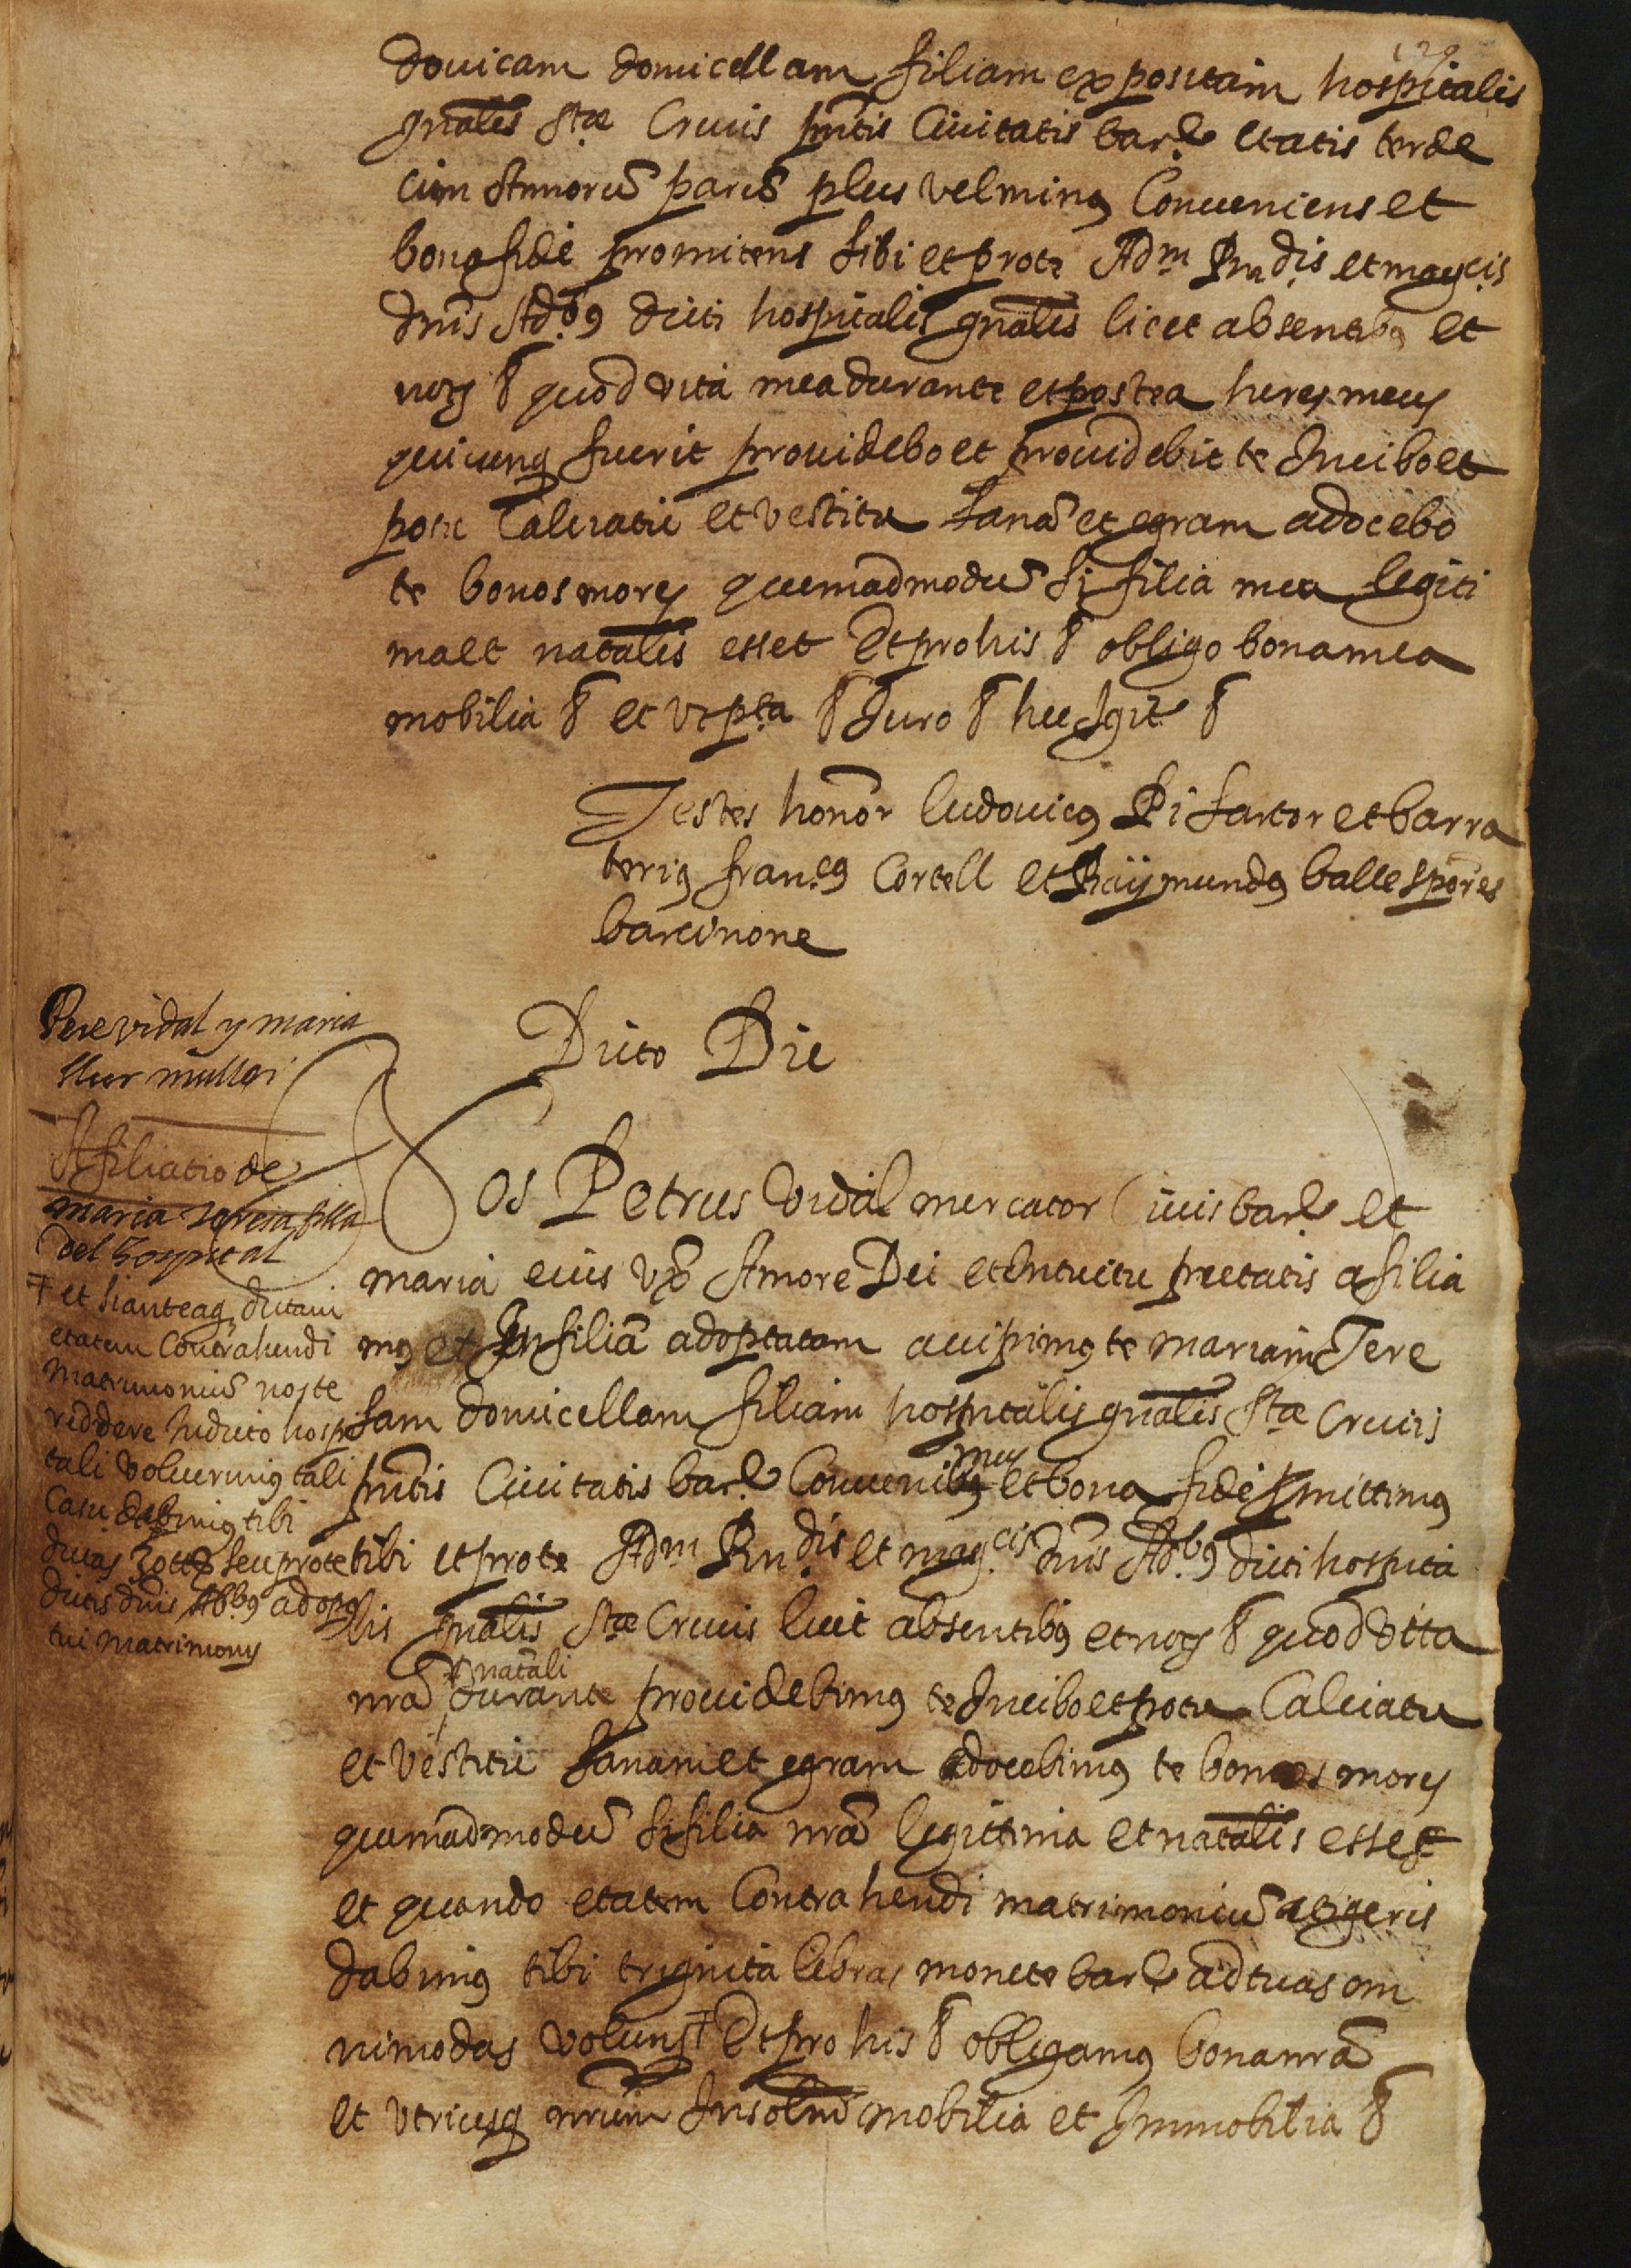 129
douicam domicellam filiam expositam hospitalis
gnalis Stæ Crucis pntis Ciuitatis barᵉ etatis terde
cim Annorū parū plus vel minꝯ Conueniens et
bona fide promitens tibi et pro te Adm Rndis et magcis
dnis Adbꝯ dicti hospitalis gnalis licet absentibꝯ et
noꝭ &̃ quod vita mea durante et postea heres meus
quicunqꝫ fuerit prouidebo et prouidebit te In cibo et
potu Calciatu et vestitu sanā et egram adocebo
te bonos mores quemadmodū si filia mea legiti
ma et natalis esset Et pro his &̃ obligo bona mea
mobilia &̃ et vt pta &̃ Juro &̃ hec Igit &̃
Testes honor Ludouicꝯ Pi sartor et barra
teriꝯ francꝯ Cortell et Raÿmundꝯ balle spores
barcinone
Dicto Die
Pere vidal y maria
llur muller
Afiliatio de
maria teresa filla
del hospital
Nos Petrus Vidal mercator Ciuis barᵉ et
maria eius vxō Amore Dei et Intuitu pietatis afilia
mꝯ et In filiā adoptatam accipimꝯ te mariam Tere
sam domicellam filiam hospitalis gnalis Stæ Crucis
pntis Ciuitatis barᵉ Conuenibꝯ mus et bona fide pmittimꝯ
tibi et pro te Adm Rndis et magcis dnis Adbꝯ dicti hospita
lis gnalis Stæ Crucis licet absentibꝯ et noꝭ &̃ quod vita
nrā natali durante prouidebimꝯ te In cibo et potu Calciatu
et vestitu sanam et egram adocebimꝯ te bonos mores
quemadmodū si filia nrā legittima et natalis esset
et quando etatem Contrahendi matrimoniū atigeris
dabimꝯ tibi triginta libras monete barᵉ ad tuas om
nimodas volunt ‡ Et pro his &̃ obligamꝯ bona nrā
et vtriusqꝫ nrum Insolm mobilia et Immobilia &̃
‡ et si anteaqꝫ dictam
etatem Contrahendi
Matrimoniū nos te
reddere In dicto hospi
tali voluerimꝯ tali
Casu dabimꝯ tibi
ducas seu pro te
dictis dnis Abbꝯ ad opꝯ
tui Matrimonij